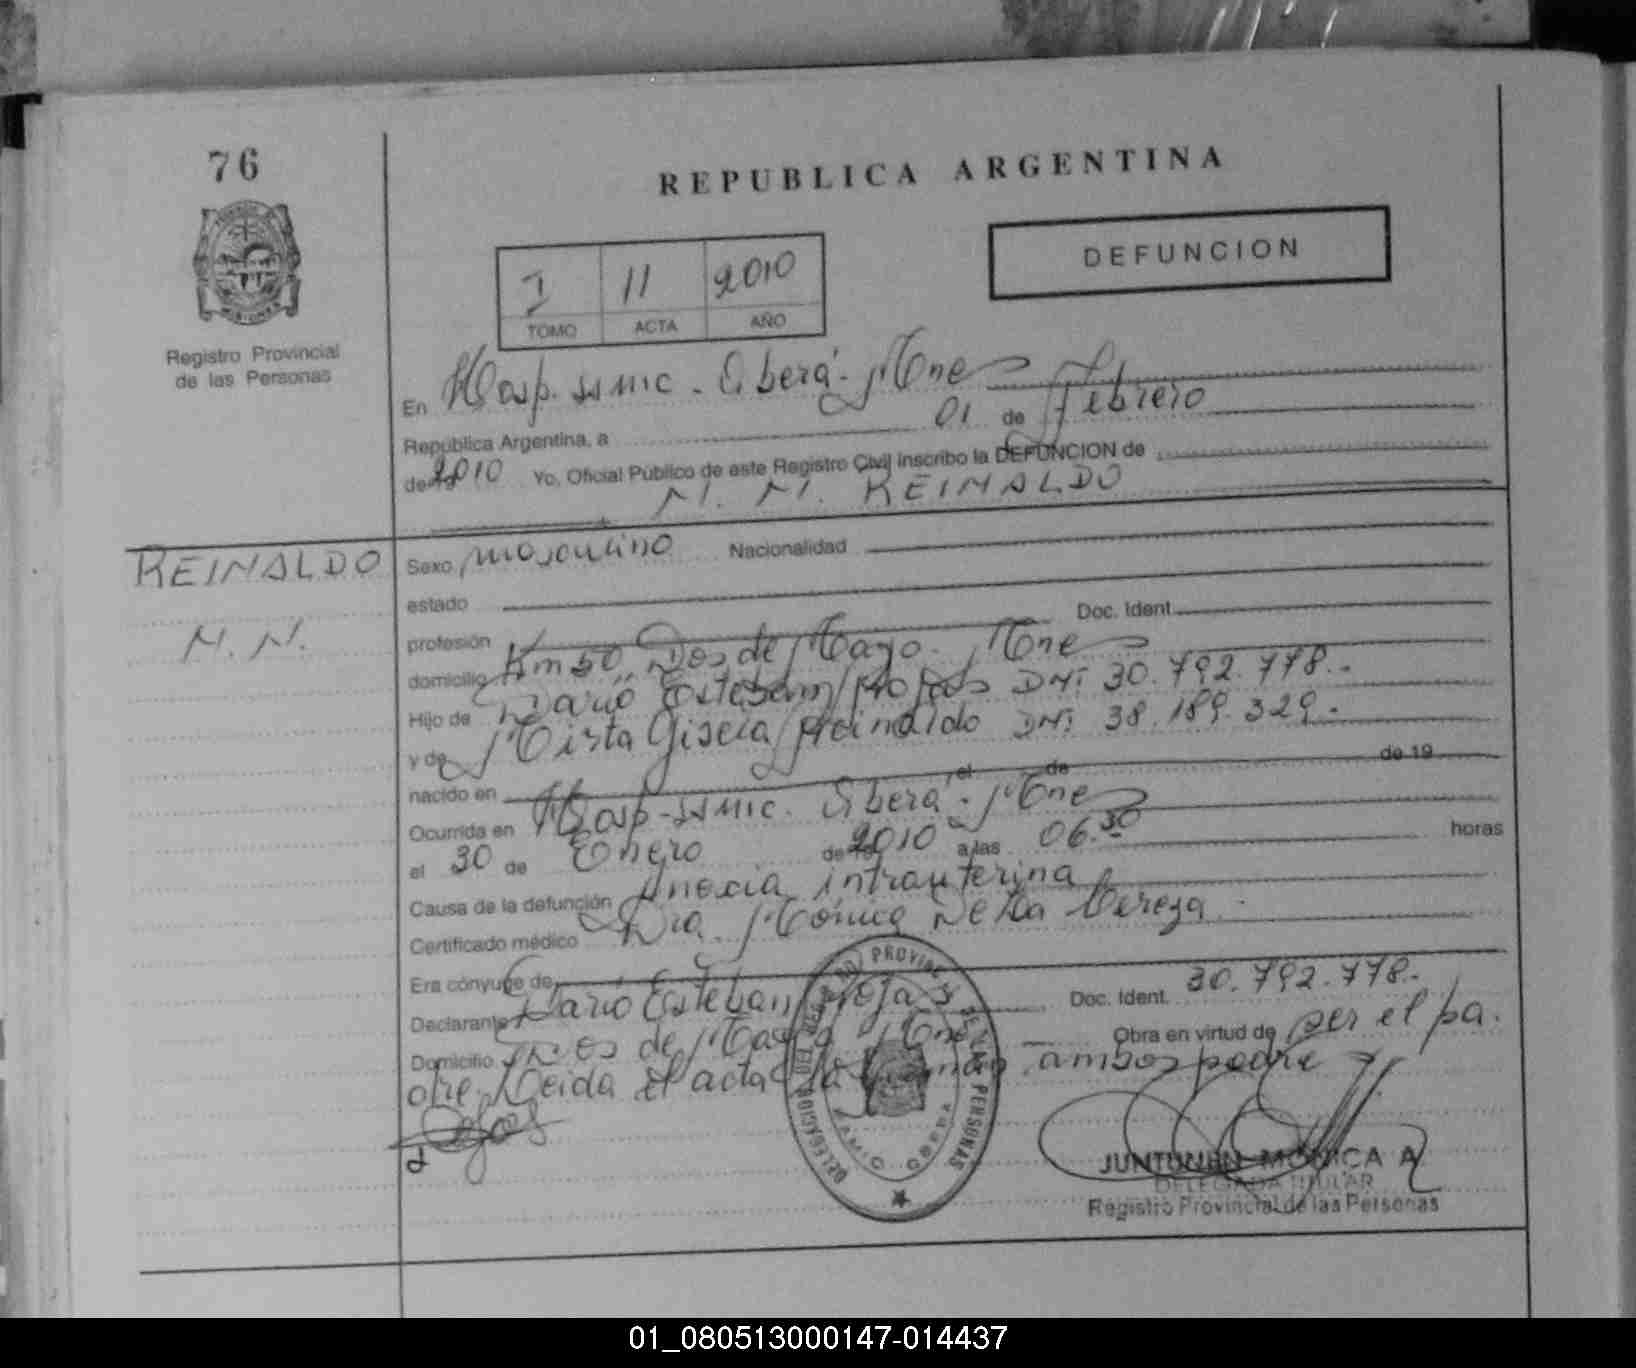 76
REPUBLICA ARGENTINA
DEFUNCION
I 11 2010
TOMO ACTA AÑO
Registro Provincial
de las Personas
En Hosp. SSMIC - Oberá - Mnes
República Argentina, a 01 de Febrero
de 19 2010 Yo, Oficial Público de este Registro Civil inscribo la DEFUNCION de
N. N. REINALDO
REINALDO
N. N.
Sexo masculino Nacionalidad
estado
profesión Doc. Ident.
domicilio Km 50 Dos de Mayo - Mnes
Hijo de Darío Esteban Rojas DNI 30.792.778.-
y de Mirta Gisela Reinaldo DNI 38.189.329.-
nacido en el de de 19
Ocurrida en Hosp-SSMIC. Oberá - Mnes
el 30 de Enero de 19 2010 a las 06.30 horas
Causa de la defunción Anoxia intrauterina
Certificado médico Dra. Mónica
Era cónyuge de
Declarante Darío Esteban Rojas Doc. Ident. 30.792.778.-
Domicilio Dos de Mayo Mnes Obra en virtud de ser el pa.
dre. Leida el acta la ambos padre
REGISTRO PROVINCIAL DE LAS PERSONAS
DELEGACION
OBERA
JUNTUNEN MONICA A
DELEGADA TITULAR
Registro Provincial de las Personas
01_080513000147-014437